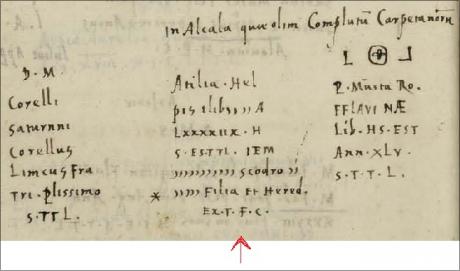 In Alcala quae olim Complutū Carpetanorū
D. M
Corelli
Saturnni
Corellus
Limcus Fra
Tri. plissimo
S. TTL.
Atilia. Hel
pis ilibs )) A
Lxxxxiix. H
S. ESTTL. IEM
)))))))))) scodro )(
* )))) Filia Et Hered.
Ex. T. F. C.
L ⊕ ⅃
P. Musta Ro.
FFLAVI NÆ
Lib. HS. EST
Ann. XLV.
S. T. T. L.